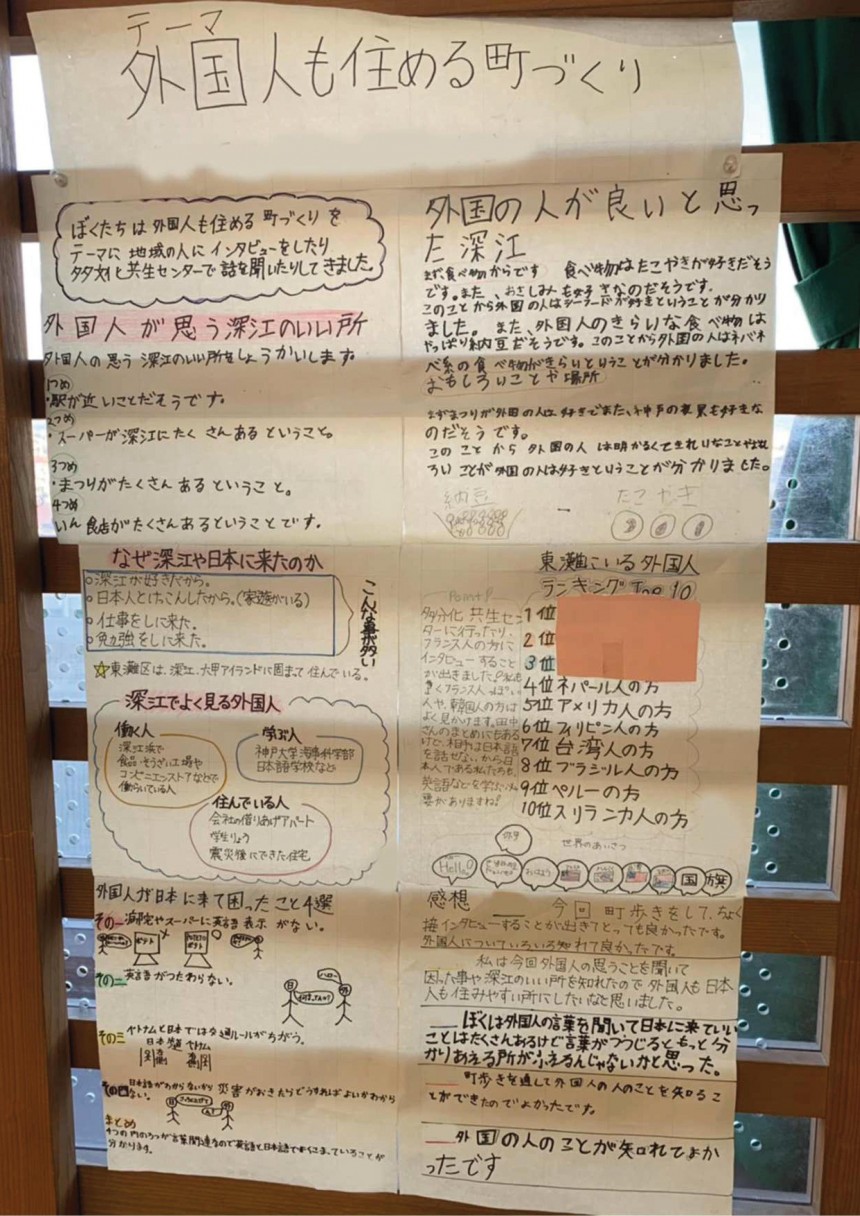 テーマ
外国人も住める町づくり
ぼくたちは外国人も住める町づくりを
テーマに地域の人にインタビューをしたり
多文化共生センターで話を聞いたりしてきました。
外国人が思う深江のいい所
外国人の思う深江のいい所をしょうかいします。
1つめ
・駅が近いことだそうです。
2つめ
・スーパーが深江にたくさんあるということ。
3つめ
・まつりがたくさんあるということ。
4つめ
いん食店がたくさんあるということです。
外国の人が良いと思っ
た深江
まず、食べ物からです 食べ物はたこやきが好きだそう
です。また、おさしみも好きなのだそうです。
このことから外国の人はシーフードが好きということが分かり
ました。また、外国人のきらいな食べ物は
やっぱり納豆だそうです。このことから外国の人はネバネ
バ系の食べ物がきらいということが分かりました。
おもしろいことや場所
まずまつりが外国の人は好きでまた、神戸の夜景も好きな
のだそうです。
このことから外国の人は明かるくてきれいなことやおも
ろいことが外国の人は好きということが分かりました。
納豆
たこやき
なぜ深江や日本に来たのか
○深江が好きだから。
○日本人とけっこんしたから。(家族がいる)
○仕事をしに来た。
○勉強をしに来た。
こんな事が多い
☆東灘区は、深江、六甲アイランドに固まって住んでいる。
深江でよく見る外国人
働く人
深江浜で
食品・そうざい工場や
コンビニエンスストアなどで
働らいている人
学ぶ人
神戸大学海事科学部
日本語学校など
住んでいる人
会社の借りあげアパート
学生りょう
震災後にできた住宅
東灘にいる外国人
ランキングTop10
1位
2位
3位
4位ネパール人の方
5位アメリカ人の方
6位フィリピン人の方
7位台湾人の方
8位ブラジル人の方
9位ペルーの方
10位スリランカ人の方
Point
多分化共生セン
ターに行ったり、
フランス人の方に
インタビューすること
が出きました。
人や、韓国人の方は
よく見かけます。田中
さんのまとめにもある
けど、相手は日本語
を話せないから日
本人である私たちも、
英語などを学ぶ必
要がありますね!
世界のあいさつ
Hello!
おはよう
国旗
外国人が日本に来て困ったこと4選
その一 病院やスーパーに英語表示がない。
その二 英語がつたわらない。
その三 ベトナムと日本では交通ルールがちがう。
日本 ベトナム
その四 日本語がわからないから災害がおきたらどうすればよいかわから
ない。
まとめ
感想
今回町歩きをして、ちょく
接インタビューすることが出きてとっても良かったです。
外国人についていろいろ知れて良かったです。
私は今回外国人の思うことを聞いて
困った事や深江のいい所を知れたので外国人も日本
人も住みやすい所にしたいなと思いました。
ぼくは外国人の言葉を聞いて日本に来ていい
ことはたくさんあるけど言葉がつうじるともっと分
かりあえる所がふえるんじゃないかと思った。
町歩きを通して外国人の人のことを知るこ
とができたのでよかったです。
外国の人のことが知れてよか
ったです